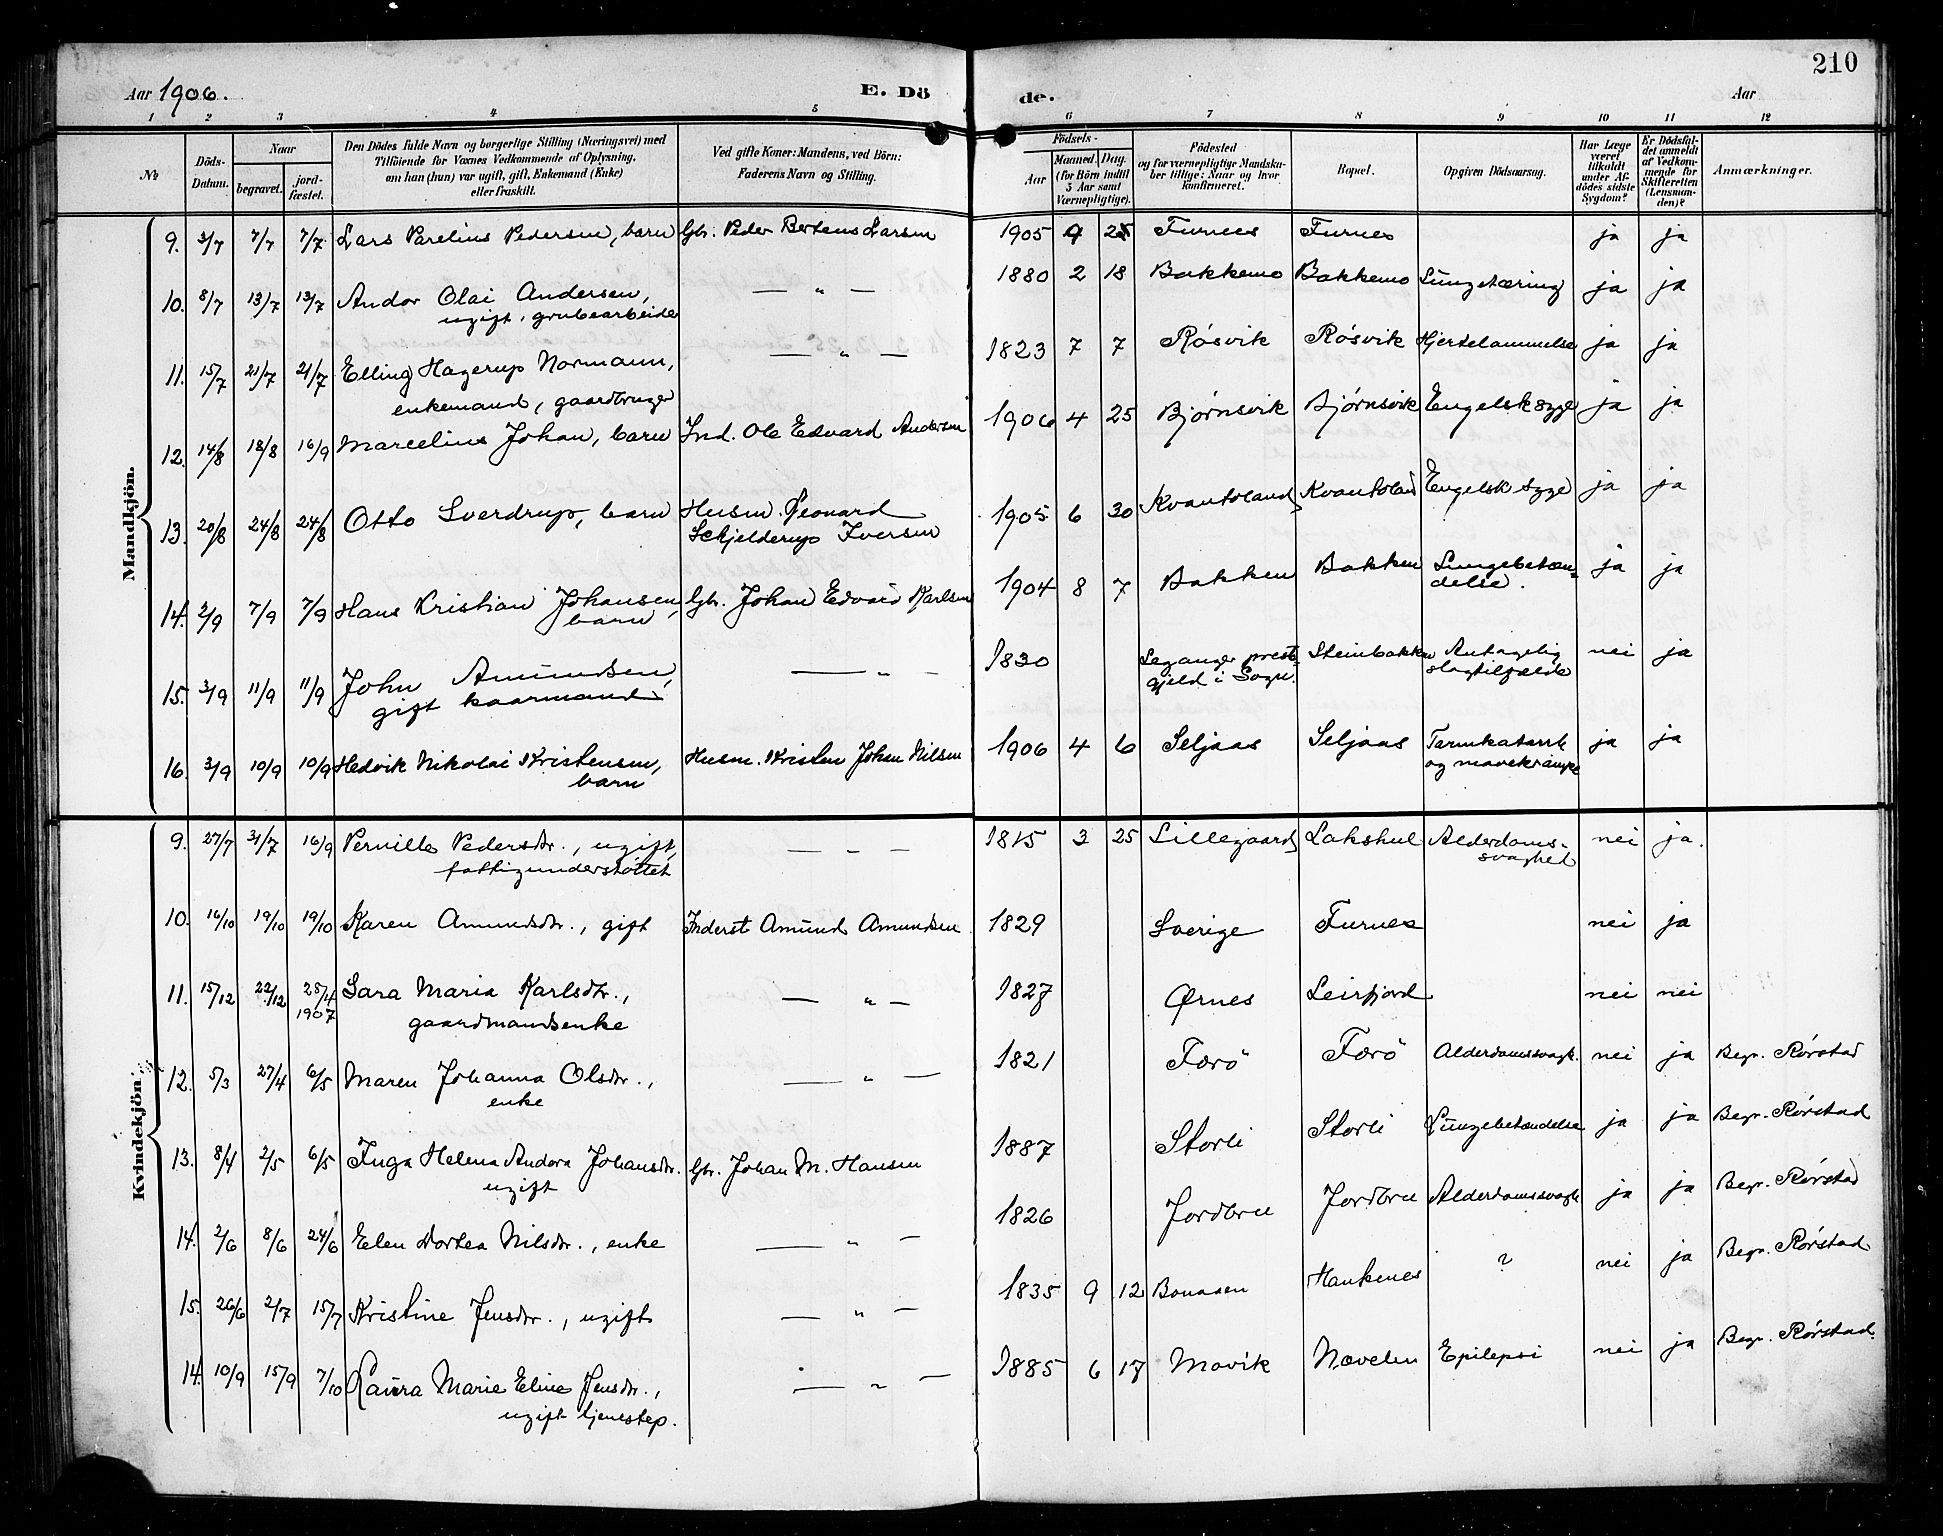 210
Aar 1906.
E. Dö de.
Aar
1 2 3 4 5 6 7 8 9 10 11 12
№
Döds-Datum.
Naar
begravet.
jord-fæstet.
Den Dödes fulde Navn og borgerlige Stilling (Næringsvei) med
Tilföiende for Voxnes Vedkommende af Oplysning,
om han (hun) var ugift, gift, Enkemand (Enke)
eller fraskilt.
Ved gifte Koner: Mandens, ved Börn:
Faderens Navn og Stilling.
Födsels-
Aar
Maaned. Dag.
(for Börn indtil
5 Aar samt
Værnepligtige).
Födested
og for værnepligtige Mandska-
ber tillige: Naar og hvor
konfirmeret.
Bopæl.
Opgiven Dödsaarsag.
Har Læge
været
tilkaldt
under Af-
dödes sidste
Sygdom?
Er Dödsfal-
det anmeldt
af Vedkom-
mende for
Skifteretten
(Lensman-
den)?
Anmærkninger.
Mandkjön.
9. 3/7 7/7 7/7 Lars Parelius Pedersen, barn Gbr. Peder Bertens Larsen 1905 9 25 Furnes Furnes ja ja
10. 8/7 13/7 13/7 Andor Olai Andersen, — " — 1880 2 18 Bakkemo Bakkemo Lungetæring ja ja
ugift, grubearbeider
11. 15/7 21/7 21/7 Elling Hagerup Normann, — " — 1823 7 7 Røsvik Røsvik Hjertelammelse ja ja
enkemand, gaardbruger
12. 14/8 18/8 16/9 Marcelius Johan, barn Ind. Ole Edvard Andersen 1906 4 25 Bjørnsvik Bjørnsvik Engelsk syge ja ja
13. 20/8 24/8 24/8 Otto Sverdrup, barn Husm. Leonard 1905 6 30 Kvantoland Kvantoland Engelsk syge ja ja
Schjelderup Iversen
14. 2/9 7/9 7/9 Hans Kristian Johansen, Gbr. Johan Edvard Karlsen 1904 8 7 Bakken Bakken Lungebetæn-
barn delse. ja ja
15. 3/9 11/9 11/9 John Amundsen, — " — 1830 Leganger preste- Steinbakken Antagelig nei ja
gift kaarmand gjeld i Sogn. slagtilfælde
16. 3/9 10/9 10/9 Hedvik Nikolai Kristensen, Husm. Kristen Johan Nilsen 1906 4 6 Seljaas Seljaas Tarmkatarrh ja ja
barn og mavekrampe
Kvindekjön.
9. 27/7 31/7 16/9 Pernille Pedersdtr., ugift, — " — 1815 3 25 Lillegaard Lakshul Alderdoms- nei ja.
fattigunderstøttet svaghed
10. 16/10 19/10 19/10 Karen Amundsdtr., gift Inderst Amund Amundsen 1829 Sverige Furnes nei ja
11. 15/12 22/12 25/4 1907 Sara Maria Karlsdtr., — " — 1827 Ørnes Leirfjord nei nei
gaardmandsenke
12. 5/3 27/4 6/5 Maren Johanna Olsdtr., — " — 1821 Færö Færö Alderdomssvagh. nei ja Begr. Rørstad
enke
13. 8/4 2/5 6/5 Inga Helena Andora Johansdtr. Gbr. Johan M. Hansen 1887 Storli Storli Lungebetændelse ja ja Begr. Rørstad
ugift
14. 2/6 8/6 24/6 Elen Dortea Nilsdtr., enke — " — 1826 Jordbru Jordbru Alderdomssvagh ja ja Begr. Rørstad
15. 26/6 2/7 15/7 Kristine Jensdtr., ugift — " — 1835 9 12 Bonaasen Hankenes ? nei ja Begr. Rørstad
14. 10/9 15/9 7/10 Laura Marie Eline Jensdtr., — " — 1885 6 17 Movik Nævelen Epilepsi nei ja Begr. Rørstad.
ugift tjenestep.